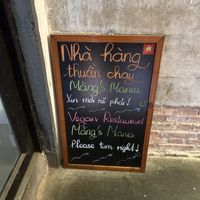 Nhà hàng
thuần chay
Măng's Mania
Xin mời rẽ phải!
Vegan Restaurant
Măng's Mana
Please turn right!